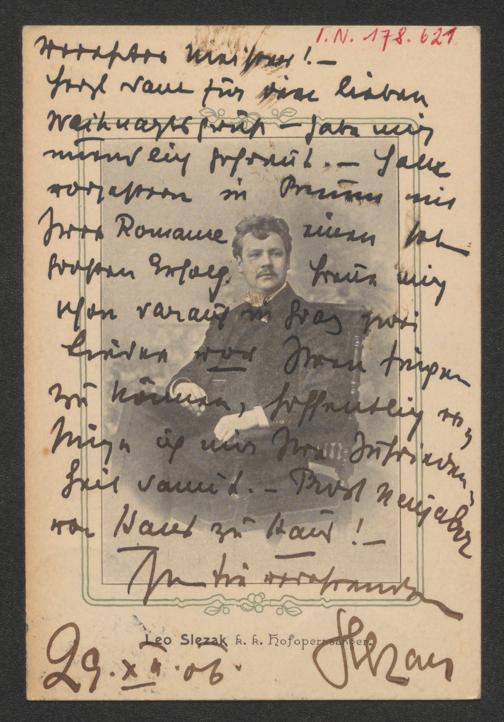 I.N. 178.621
verehrter Meister! –
Herzl Dank für Ihre lieben
Weihnachtsgrüße – habe mich
unendlich gefreut. – Habe
vorgestern in Brünn mit
Ihrer Romanze einen sehr
großen Erfolg. Freue mich
schon darauf in Graz zwei
Lieder von Ihnen singen
zu können, hoffentlich er-
ringe ich mir Ihre Zufrieden-
heit damit. – Prost Neujahr
von Haus zu Haus! –
Ihr Sie verehrender
Leo Slezak k. k. Hofopernsänger.
Slezak
29. XII. 06.